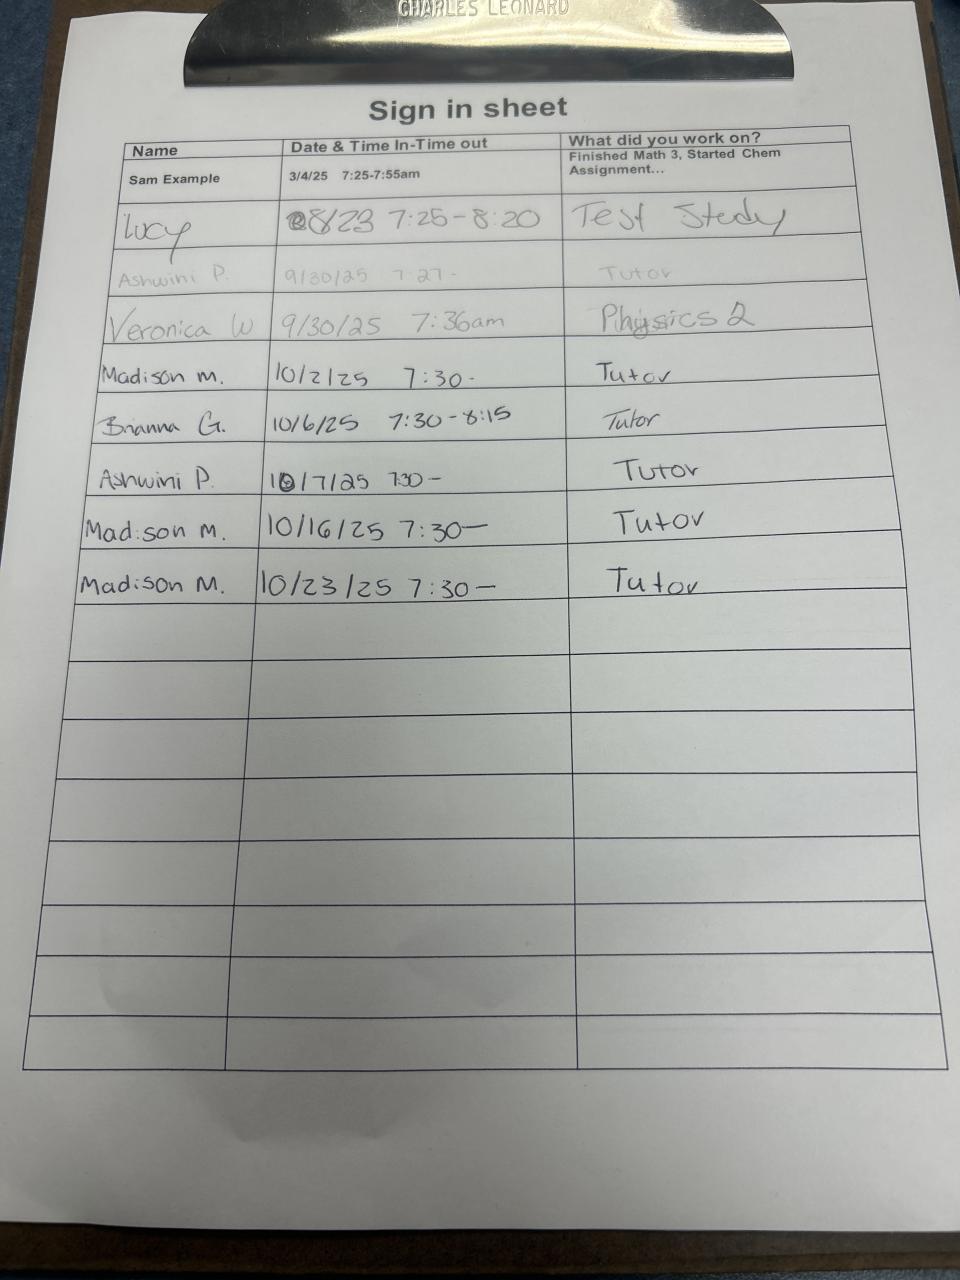 CHARLES LEONARD
Sign in sheet
Name Date & Time In-Time out What did you work on?
Sam Example 3/4/25 7:25-7:55am Finished Math 3, Started Chem
Assignment...
Lucy 8/23 7:25-8:20 Test Stedy
Ashwini P. 9/30/25 7:27- Tutor
Veronica W 9/30/25 7:36am Physics 2
Madison M. 10/2/25 7:30- Tutor
Brianna G. 10/6/25 7:30-8:15 Tutor
Ashwini P. 10/7/25 7:30- Tutor
Madison M. 10/16/25 7:30- Tutor
Madison M. 10/23/25 7:30- Tutor